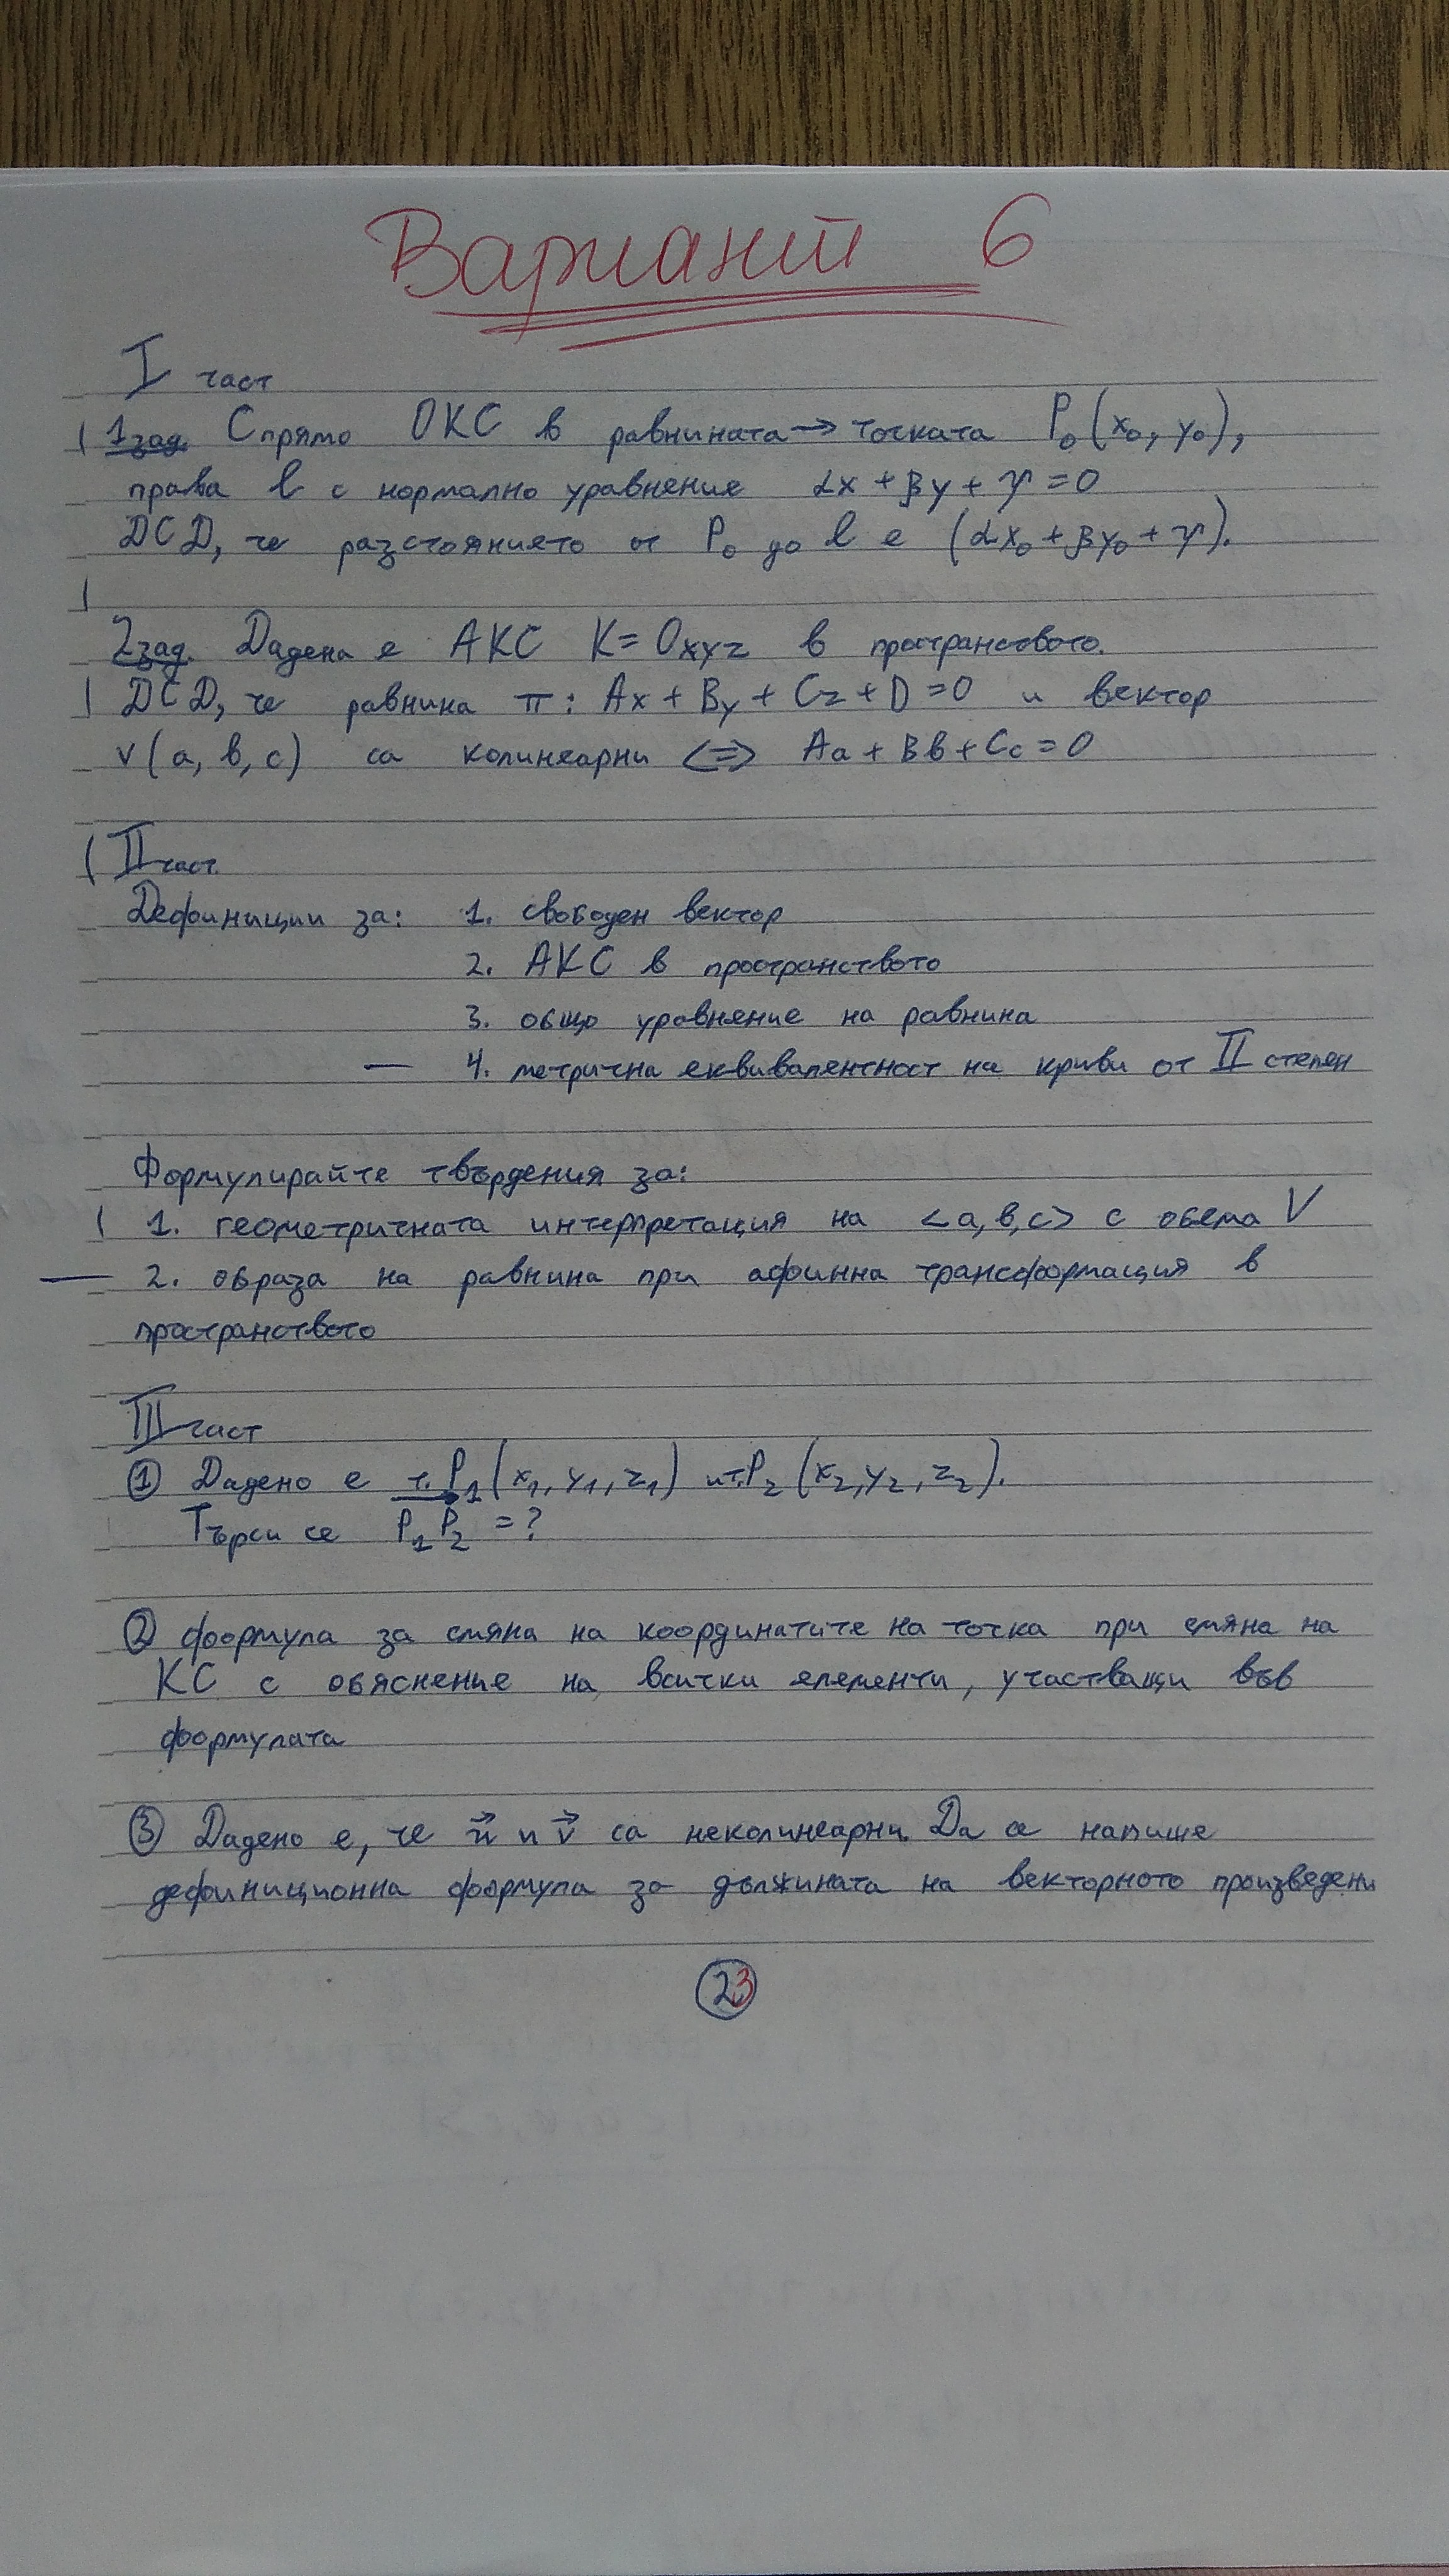 Вариант 6
I част
1зад. Спрямо ОКС в равнината → точката P₀(x₀, y₀),
права l с нормално уравнение αx + βy + γ = 0
DCD, че разстоянието от P₀ до l е (αx₀ + βy₀ + γ).
2зад. Дадена е АКС K = Oxyz в пространството.
DCD, че равнина π: Ax + By + Cz + D = 0 и вектор
v(a, b, c) са колинеарни <=> Aa + Bb + Cc = 0
II част
Дефиниции за: 1. свободен вектор
2. АКС в пространството
3. общо уравнение на равнина
— 4. метрична еквивалентност на криви от II степен
Формулирайте твърдения за:
1. геометричната интерпретация на <a, b, c> с обема V
— 2. образа на равнина при афинна трансформация в
пространството
III част
① Дадено е т. P₁(x₁, y₁, z₁) и т. P₂(x₂, y₂, z₂).
Търси се P₁P₂ = ?
② формула за смяна на координатите на точка при смяна на
КС с обяснение на всички елементи, участващи във
формулата
③ Дадено е, че u и v са неколинеарни. Да се напише
дефиниционна формула за дължината на векторното произведени
23